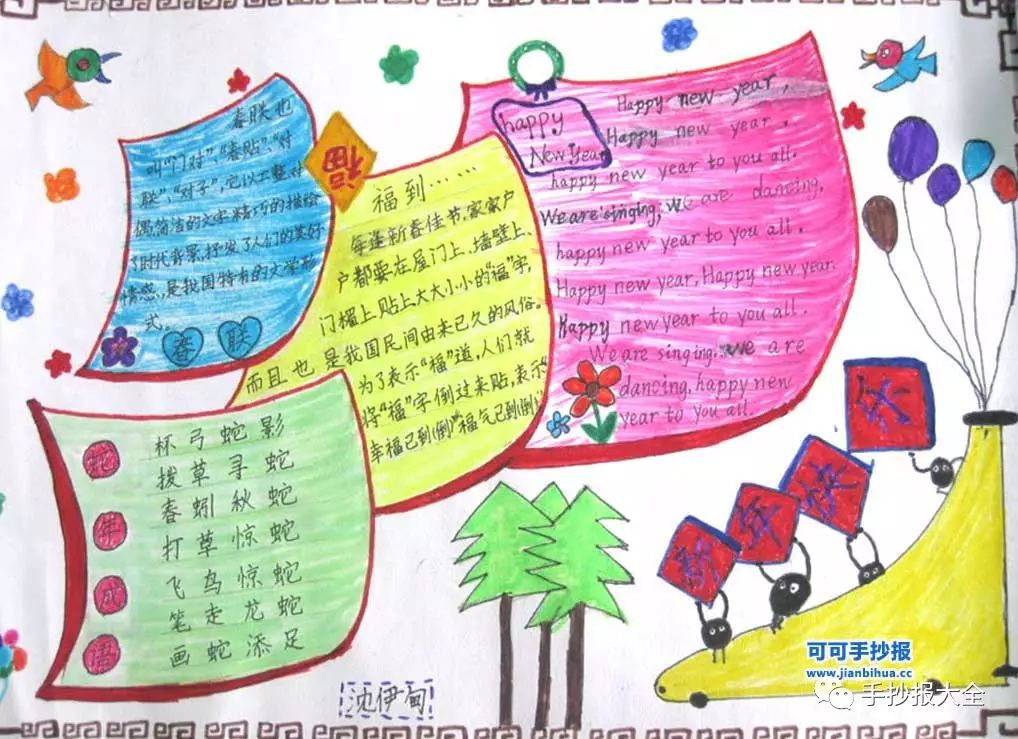 春联也
叫“门对”、“春贴”、“对
联”，“对子”，它以工整对
偶简洁的文字精巧的描绘
了时代背景，抒发了人们的美好
情感，是我国特有的文学形
式。
春联
福
福到……
每逢新春佳节，家家户
户都要在屋门上、墙壁上、
门楣上贴上大大小小的“福”字，
而且也是我国民间由来已久的风俗。
为了表示“福”道，人们就
将“福”字倒过来贴，表示“
幸福已到(倒)”“福气已到(倒)”
happy
New Year
Happy new year,
Happy new year.
happy new year to you all.
We are singing; We are dancing,
happy new year to you all.
Happy new year, Happy new year.
Happy new year to you all.
We are singing. we are
dancing, happy new
year to you all.
蛇年成语
杯弓蛇影
拨草寻蛇
春蚓秋蛇
打草惊蛇
飞鸟惊蛇
笔走龙蛇
画蛇添足
沈伊甸
可可手抄报
www.jianbihua.cc
手抄报大全